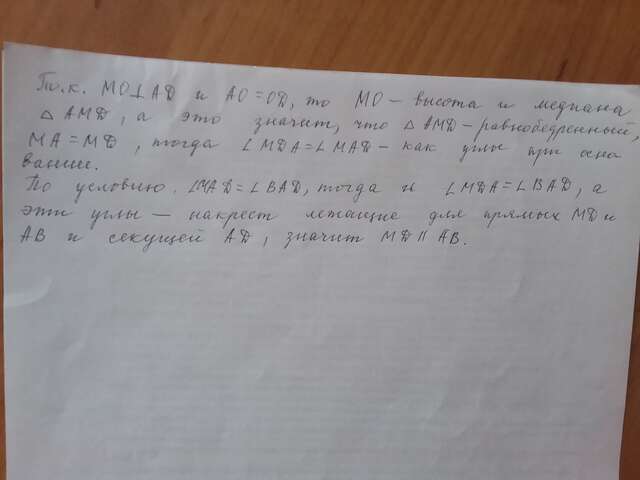 Т.к. MO⊥AD и AO=OD, то MO – высота и медиана
△ AMD, а это значит, что △ AMD – равнобедренный,
MA = MD, тогда ∠MDA = ∠MAD – как углы при осно
вании.
По условию ∠MAD = ∠BAD, тогда и ∠MDA = ∠BAD, а
эти углы – накрест лежащие для прямых MD и
AB и секущей AD, значит MD ∥ AB.